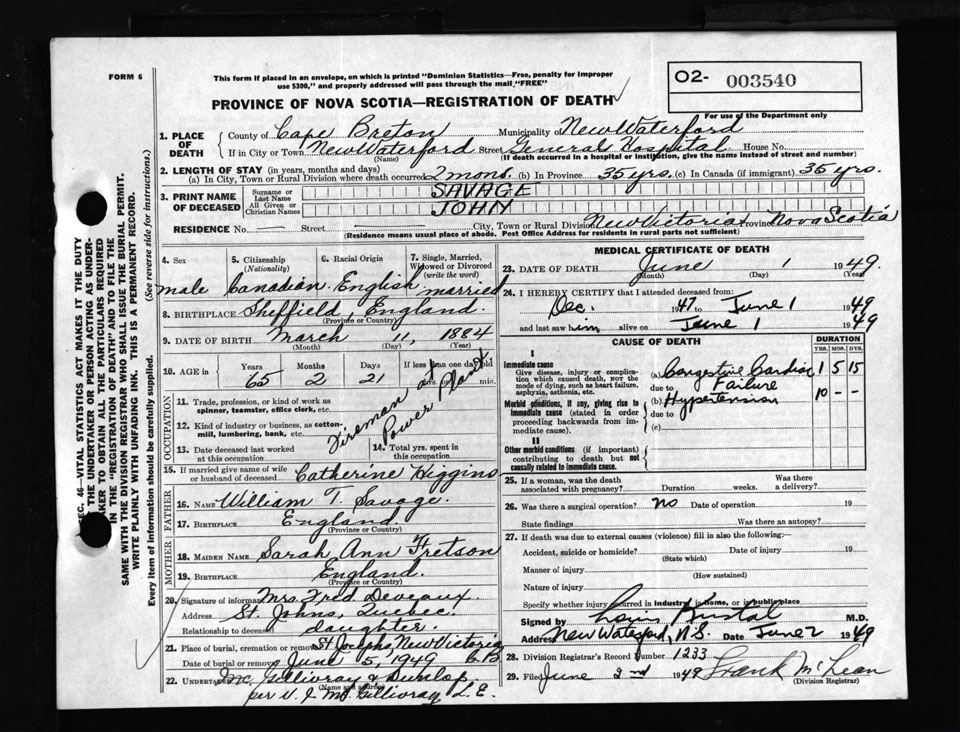 FORM 6
This form if placed in an envelope, on which is printed "Dominion Statistics—Free, penalty for improper
use $300," and properly addressed will pass through the mail, "FREE"
O2- 003540
PROVINCE OF NOVA SCOTIA—REGISTRATION OF DEATH
For use of the Department only
1. PLACE OF DEATH
County of Cape Breton Municipality of New Waterford
If in City or Town New Waterford Street General Hospital House No.
(Name) (If death occurred in a hospital or institution, give the name instead of street and number)
2. LENGTH OF STAY (in years, months and days)
(a) In City, Town or Rural Division where death occurred 2 monts. (b) In Province 35 yrs. (c) In Canada (if immigrant) 35 yrs.
3. PRINT NAME OF DECEASED
Surname or Last Name SAVAGE
All Given or Christian Names JOHN
RESIDENCE No. — Street — City, Town or Rural Division New Victoria Province Nova Scotia
(Residence means usual place of abode. Post Office Address for residents in rural parts not sufficient)
4. Sex
male
5. Citizenship
(Nationality)
Canadian
6. Racial Origin
English
7. Single, Married,
Widowed or Divorced
(write the word)
married
8. BIRTHPLACE Sheffield, England.
(Province or Country)
9. DATE OF BIRTH March 11, 1884
(Month) (Day) (Year)
10. AGE in Years Months Days If less than one day old
65 2 21 hrs. min.
OCCUPATION
11. Trade, profession, or kind of work as
spinner, teamster, office clerk, etc.
12. Kind of industry or business, as cotton-
mill, lumbering, bank, etc.
Fireman at
Power Plant
13. Date deceased last worked
at this occupation
14. Total yrs. spent in
this occupation
15. If married give name of wife
or husband of deceased Catherine Higgins
FATHER
16. Name William T. Savage.
17. Birthplace England.
(Province or Country)
MOTHER
18. Maiden Name Sarah Ann Fretson
19. Birthplace England.
(Province or Country)
20. Signature of informant Mrs. Fred Deveaux
Address St. Johns, Quebec.
Relationship to deceased daughter.
21. Place of burial, cremation or removal St Josephs, New Victoria
Date of burial or removal June 5, 1949 C.B
22. Undertaker McGillivray & Dunlop
(Name and address)
per V. J. McGillivray L.E.
MEDICAL CERTIFICATE OF DEATH
23. DATE OF DEATH June 1 1949.
(Month) (Day) (Year)
24. I HEREBY CERTIFY that I attended deceased from:
Dec. 1947 to June 1 1949
and last saw him alive on June 1 1949
CAUSE OF DEATH
DURATION
YRS. MOS. DYS.
I
Immediate cause
Give disease, injury or compli-
cation which caused death, NOT the
mode of dying, such as heart failure,
asphyxia, asthenia, etc.
(a) Congestive Cardiac 1 5 15
due to Failure
Morbid conditions, if any, giving rise to
immediate cause (stated in order
proceeding backwards from im-
mediate cause).
(b) Hypertension 10 - -
due to
(c)
II
Other morbid conditions (if important)
contributing to death but not
causally related to immediate cause.
25. If a woman, was the death
associated with pregnancy? Duration weeks. Was there
a delivery?
26. Was there a surgical operation? no Date of operation 19
State findings Was there an autopsy?
27. If death was due to external causes (violence) fill in also the following:
Accident, suicide or homicide? Date of injury 19
(State which)
Manner of injury
(How sustained)
Nature of injury
Specify whether injury occurred in industry, in home, or in public place
Signed by M.D.
Address New Waterford, N.S. Date June 2 1949
28. Division Registrar's Record Number 1233
29. Filed June 2nd 1949 Frank McLean
(Division Registrar)
SEC. 46—VITAL STATISTICS ACT MAKES IT THE DUTY
THE UNDERTAKER OR PERSON ACTING AS UNDER-
AKER TO OBTAIN ALL THE PARTICULARS REQUIRED
IN THE "REGISTRATION OF DEATH" AND TO FILE THE
SAME WITH THE DIVISION REGISTRAR WHO SHALL ISSUE THE BURIAL PERMIT.
WRITE PLAINLY WITH UNFADING INK. THIS IS A PERMANENT RECORD.
Every item of information should be carefully supplied. (See reverse side for instructions.)